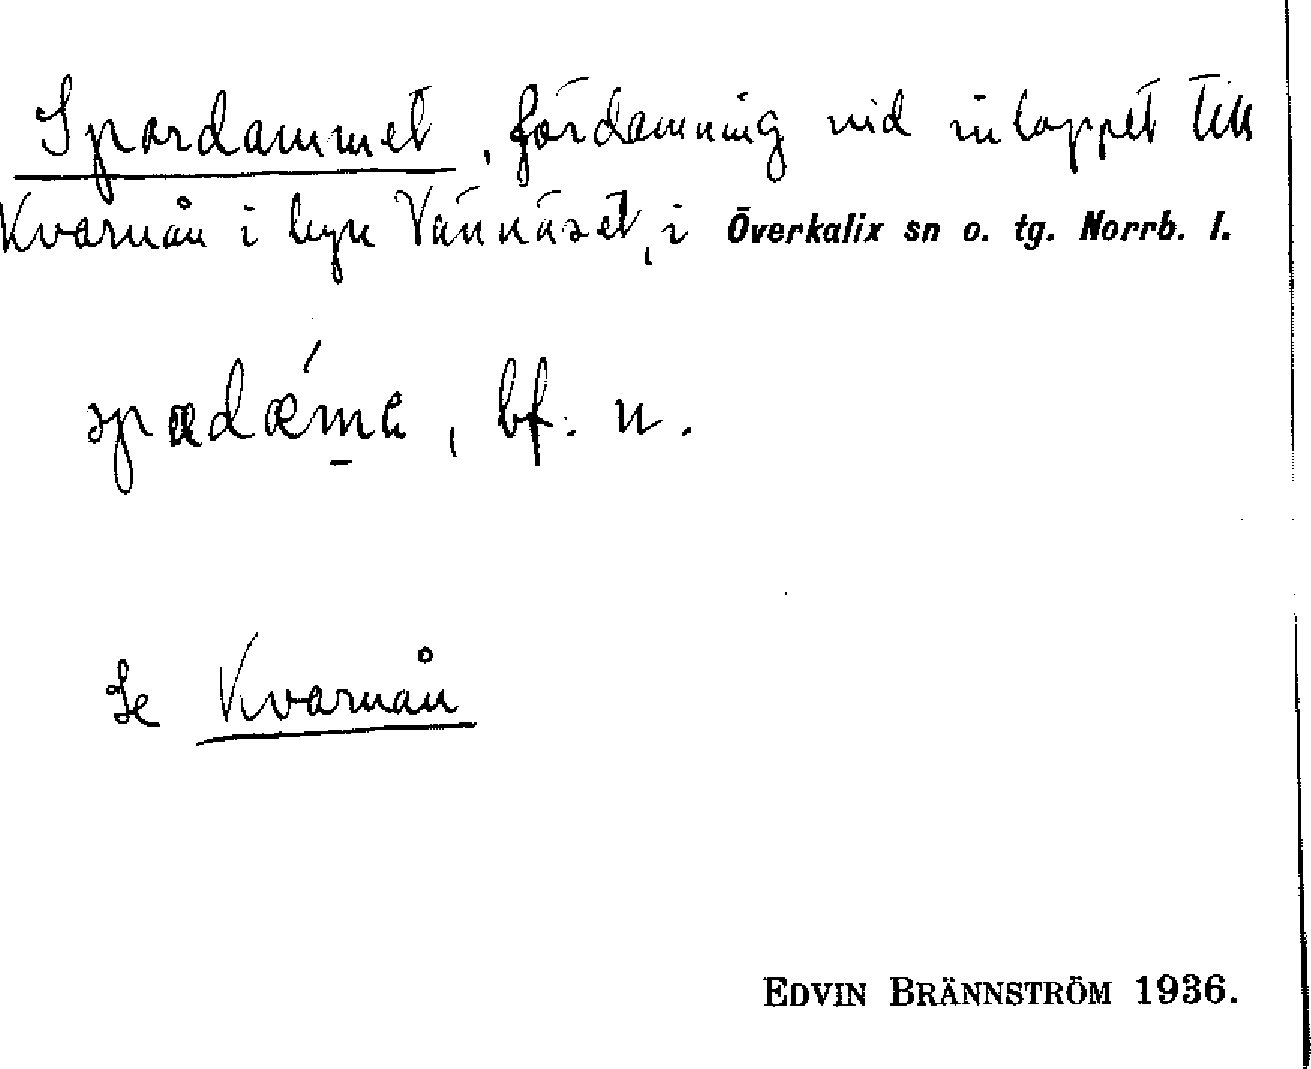 Spardammet, fördamning vid inloppet till
Kvarnån i byn Vännäset, i Överkalix sn o. tg. Norrb. l.
spædǽm̱e, bf. n.
Se Kvarnån
EDVIN BRÄNNSTRÖM 1936.